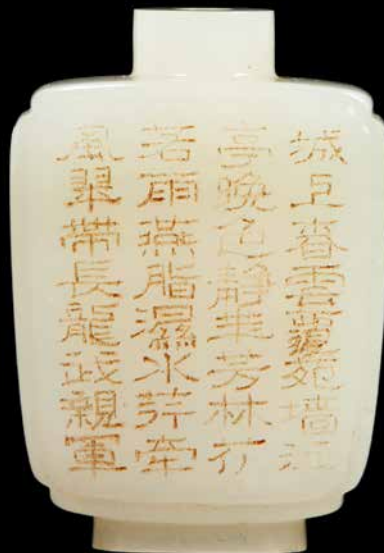 城上春雲覆苑墙江
亭晚色靜年芳林花
著雨燕脂濕水荇牽
風翠帶長龍武親軍